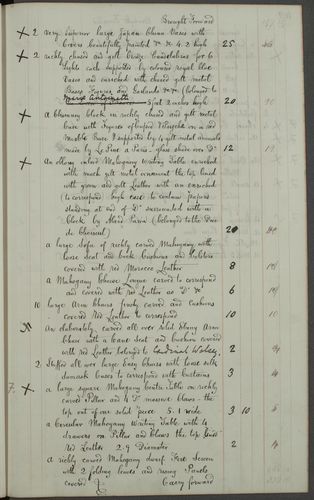 Brought Forward
x 2 very superior large Japan China Vases with
Covers beautifully painted &c &c 4.2 high 25
x 2 richly chased and gilt Bronze Candelabras for 6
Lights each supported by coloured royal blue
Vases and enriched with chased gilt metal
Figures and Garlands &c &c (belonged to
Marie Antoinette 5 feet 2 inches high 20
x a Chimney Clock in richly chased and gilt metal
Case with Figures of
Marble Base supported by 4 gilt metal
made by Le Paute a Paris glass shade over Do 12
x An Ebony inlaid Mahogany Writing Table enriched
with much gilt metal ornament the top lined
with green and gilt Leather with an enriched
to correspond high case to contain Papers
standing at end of Do surmounted with a
Clock by Paris (belonged to the Duc
de Choiseul) 20
a large Sofa of richly carved Mahogany with
loose Seat and back Cushions and Bolsters
covered with red Morocco Leather 8
a Mahogany Chaise Longue carved to correspond
and covered with red Leather as Do &c 6
10 large Arm Chairs finely carved and Cushions
covered Red Leather to correspond 10 10
An elaborately carved all over solid Ebony Arm
Chair with a loose Seat and Cushion covered
with red Leather belonged to Cardinal Wolsey 2
2 Stuffed all over large Easy Chairs with loose silk
damask Cases to correspond with Curtains 3 4
7. x a large square Mahogany Centre Table on richly
carved Pillar and 4 Do massive Claws - the
top out of one solid piece 5.1 wide 3 10 5
a Circular Mahogany Writing Table with 4
drawers on Pillar and Claws the top lined
red Leather 2.9 Diameter 2 4
a richly carved Mahogany dwarf Fire Screen
with 2 folding leaves and rising Panels
covered Carry forward